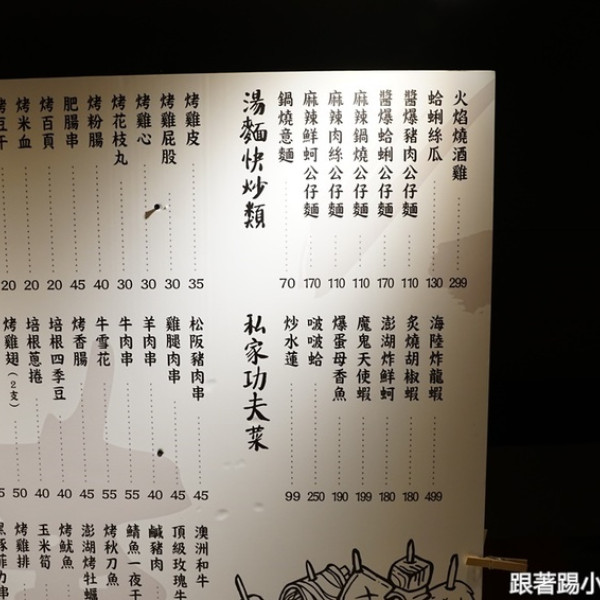 火焰燒酒雞 299
蛤蜊絲瓜 130
醬爆豬肉公仔麵 110
醬爆蛤蜊公仔麵 170
麻辣鍋燒公仔麵 110
麻辣肉絲公仔麵 110
麻辣鮮蚵公仔麵 170
鍋燒意麵 70
湯麵快炒類
烤雞皮 35
烤雞屁股 30
烤雞心 30
烤花枝丸 30
烤粉腸 40
肥腸串 45
烤百頁 20
烤米血 20
烤豆干 20
海陸炸龍蝦 499
炙燒胡椒蝦 180
澎湖炸鮮蚵 180
魔鬼天使蝦 199
爆蛋母香魚 190
啵啵蛤 250
炒水蓮 99
私家功夫菜
松阪豬肉串 45
雞腿肉串 45
羊肉串 40
牛肉串 55
牛雪花 55
烤香腸 45
培根四季豆 40
培根蔥捲 50
烤雞翅(2支)
澳洲和牛
頂級玫瑰牛
鹹豬肉
鯖魚一夜干
烤秋刀魚
澎湖烤牡蠣
烤魷魚
玉米筍
烤雞排
跟著踢小